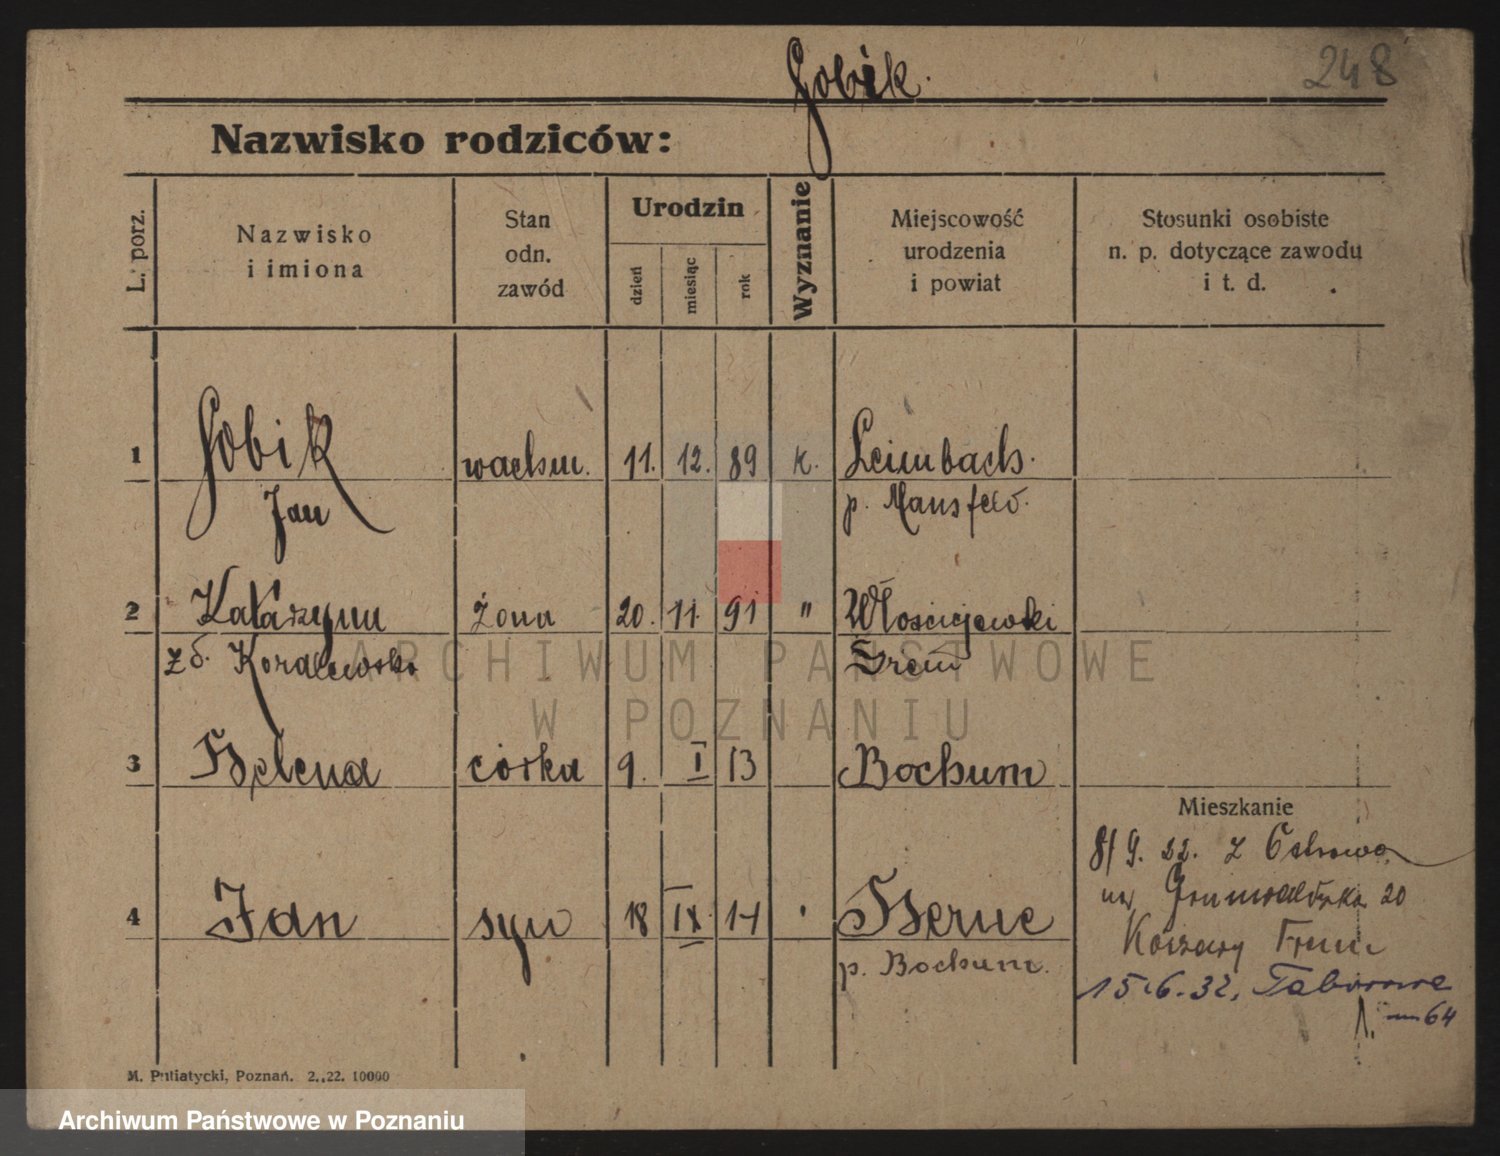 Gobik.
248
Nazwisko rodziców:
L. porz.
Nazwisko i imiona
Stan odn. zawód
Urodzin
dzień
miesiąc
rok
Wyznanie
Miejscowość urodzenia i powiat
Stosunki osobiste n. p. dotyczące zawodu i t. d.
1 Gobik wachm. 11. 12. 89 k. Leimbach.
Jan p. Mansfeld.
2 Katarzyna żona 20. 11. 91 " Włościejewki
z d. Koralewska Śrem
3 Helena córka 9. I 13 Bochum
Mieszkanie
8/9. 22. z Ostrowa
4 Jan syn 18 IX. 14 Herne
Grunwaldzka 20
p. Bochum.
Koszary
15.6.32. Taborowa
64
M. Putiatycki, Poznań. 2.,22. 10000
ARCHIWUM PAŃSTWOWE
W POZNANIU
Archiwum Państwowe w Poznaniu